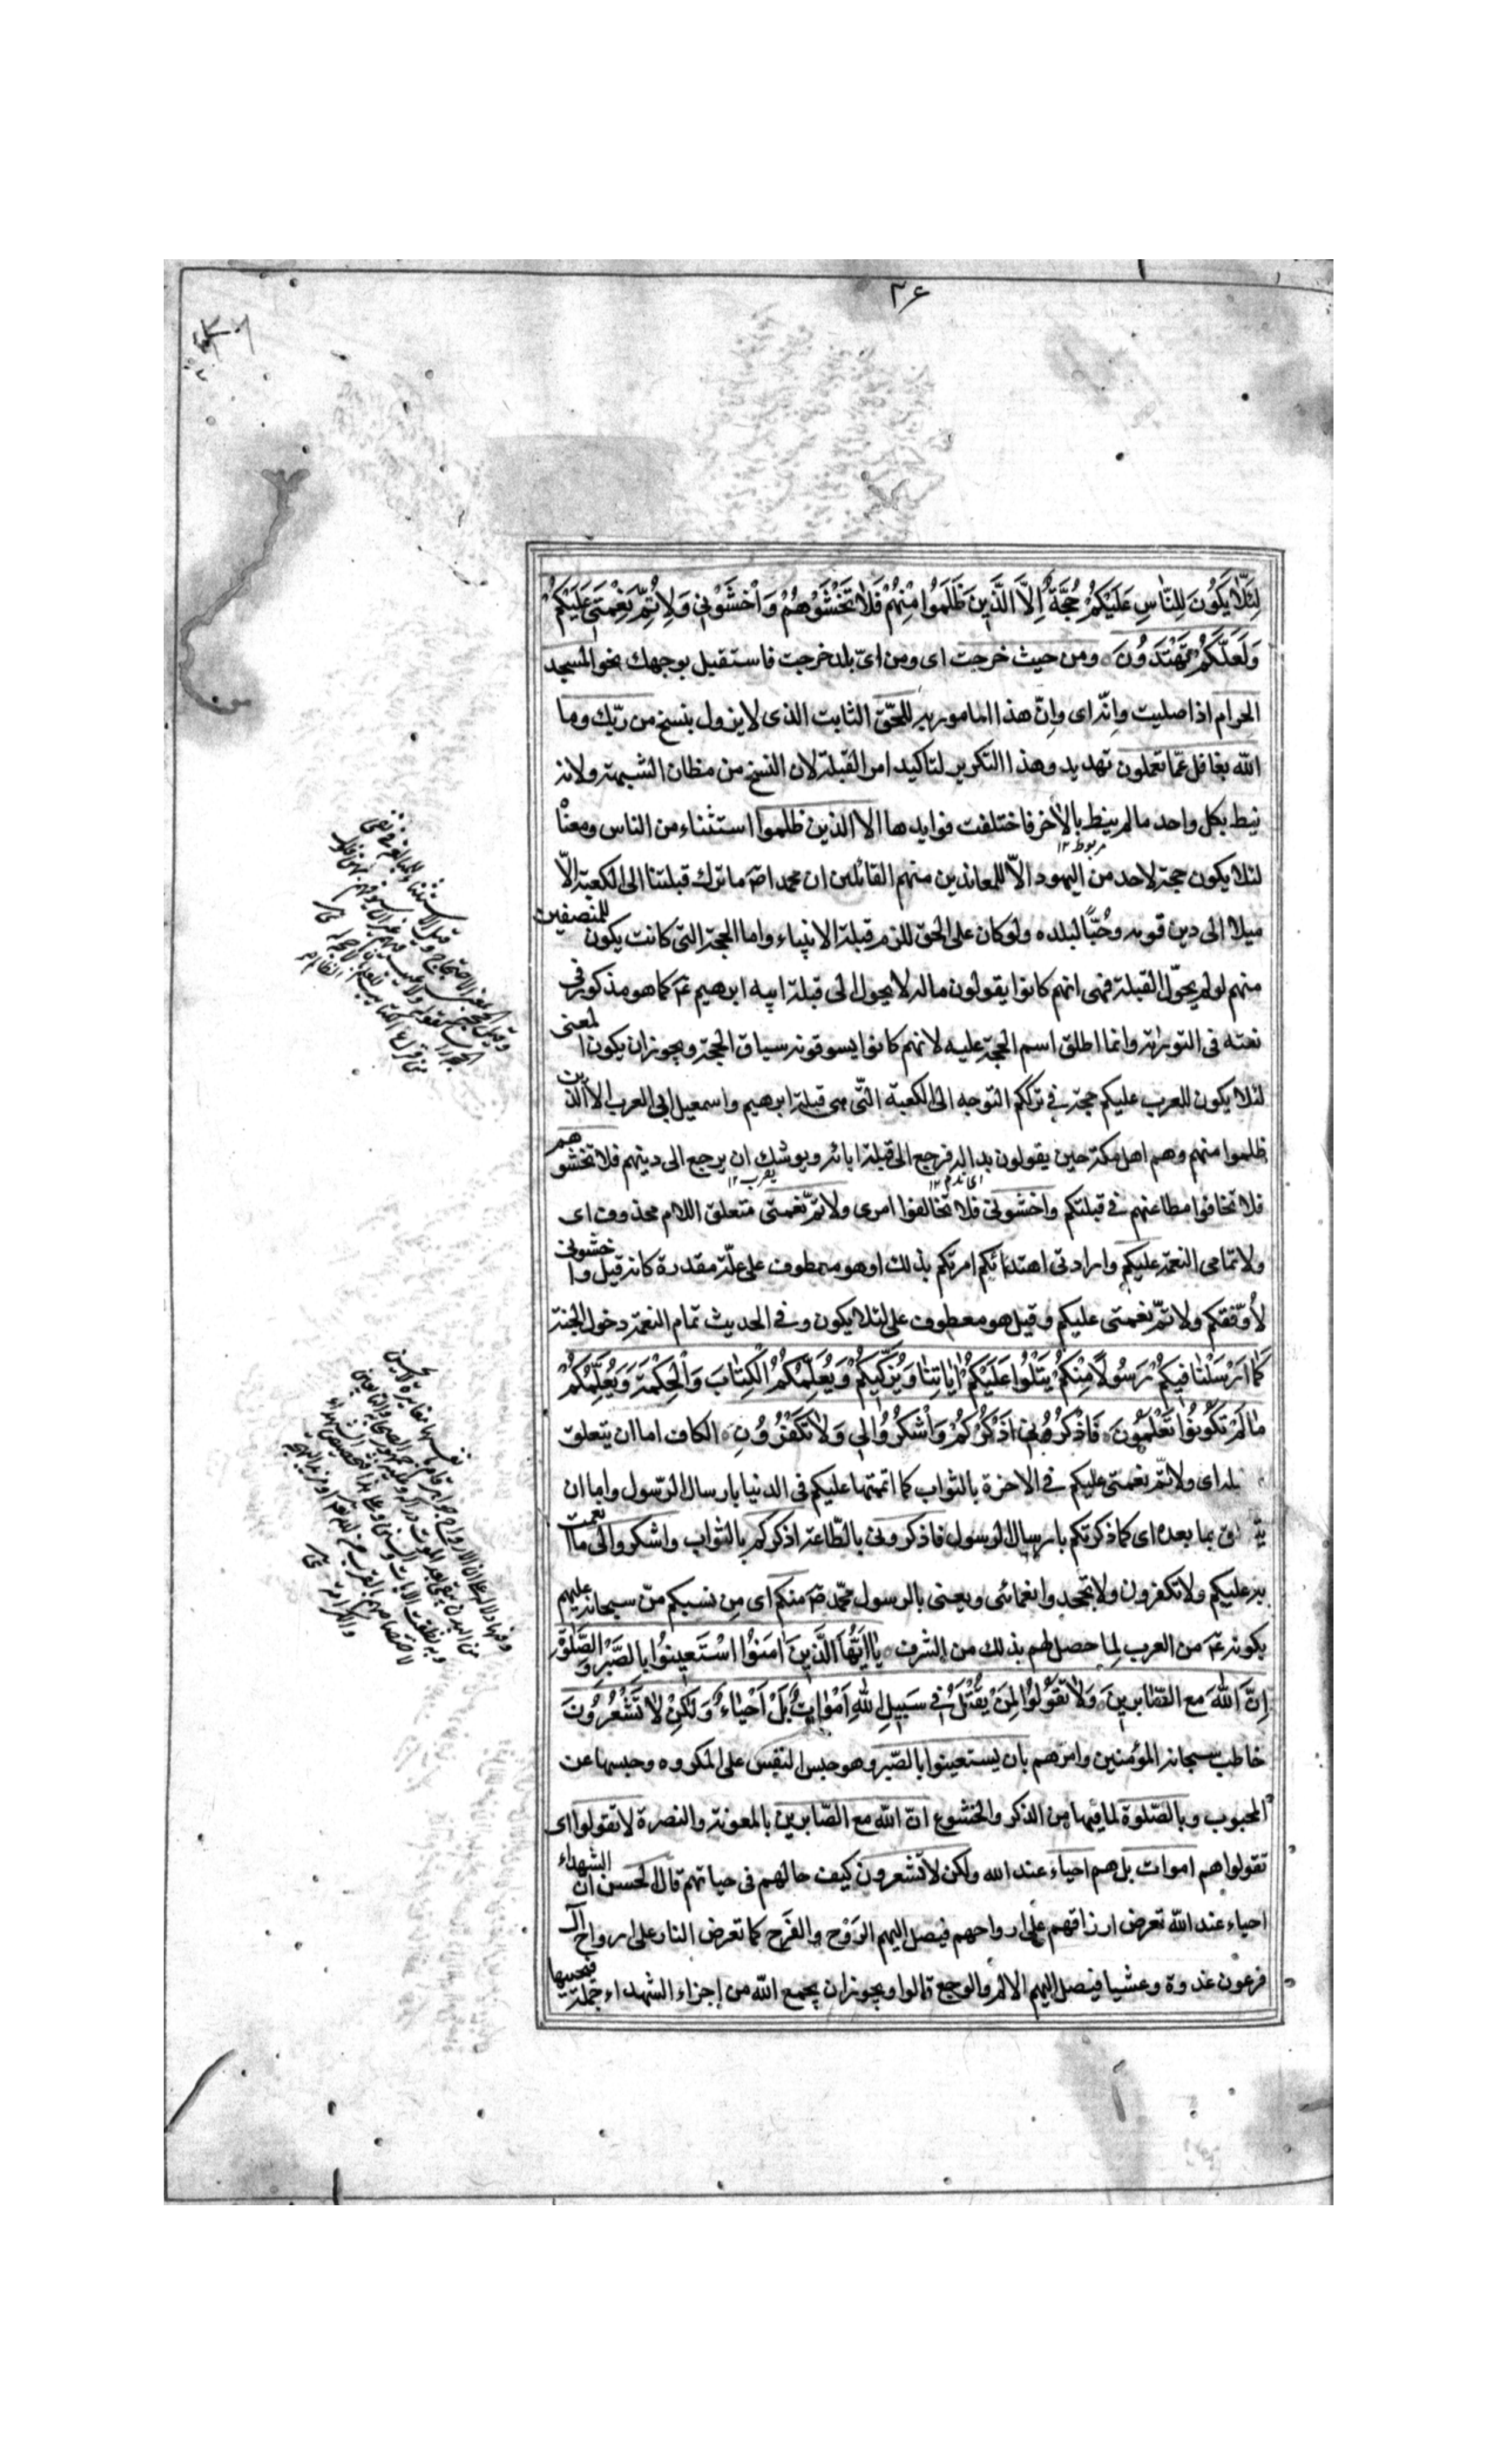 ٣۶
لِئَلّٰا يَكُونَ لِلنّٰاسِ عَلَيْكُمْ حُجَّةٌ اِلَّا الَّذِينَ ظَلَمُوا مِنْهُمْ فَلٰا تَخْشَوْهُمْ وَاخْشَوْنِي وَلِاُتِمَّ نِعْمَتِي عَلَيْكُمْ
وَلَعَلَّكُمْ تَهْتَدُونَ ومن حيث خرجت اى ومن اىّ بلد خرجت فاستقبل بوجهك نحو المسجد
الحرام اذا صليت وانّه اى وانّ هذا المامور به للحقّ الثابت الذى لا يزول بنسخ من ربّك وما
الله بغافل عمّا تعملون تهديد وهذا التكرير لتاكيد امر القبلة لان النسخ من مظان الشبهة ولانه
نيط بكل واحد ما لم ينط بالاخر فاختلفت فوايدها الا الذين ظلموا استثناء من الناس ومعناه
مربوط ١٢
لئلا يكون حجة لاحد من اليهود الّا للمعاندين منهم القائلين ان محمدا صٓ ما ترك قبلتنا الى الكعبة الّا
ميلا الى دين قومه وحُبّاً لبلده ولو كان على الحق للزم قبلة الانبياء واما الحجة التى كانت يكون للمنصفين
منهم لو لم يحوّل القبلة فهى انهم كانوا يقولون ما له لا يحول الى قبلة ابيه ابرهيم عٓ كما هو مذكور فى
نعته فى التورٰية وانما اطلق اسم الحجة عليه لانهم كانوا يسوقونه سياق الحجة ويجوز ان يكون المعنى
لئلا يكون للعرب عليكم حجة فى ترككم التوجه الى الكعبة التّى هى قبلة ابرهيم واسمعيل ابى العرب الا الذين
ظلموا منهم وهم اهل مكة حين يقولون بدا له فرجع الى قبلة ابائه ويوشك ان يرجع الى دينهم فلا تخشوهم
اى ندم ١٢ يقرب ١٢
فلا تخافوا مطاعنهم فى قبلتكم واخشونى فلا تخالفوا امرى ولاتمّ نعمتى متعلق اللام محذوف اى
ولاتمامى النعمة عليكم وارادتى اهتدائكم امرتكم بذلك او هو معطوف على علّة مقدرة كانه قيل واخشونى
لأوفّقكم ولاتمّ نعمتى عليكم وقيل هو معطوف على لئلا يكون وفى الحديث تمام النعمة دخول الجنة
كَمٰا اَرْسَلْنٰا فِيكُمْ رَسُولًا مِنْكُمْ يَتْلُوا عَلَيْكُمْ اٰيٰاتِنٰا وَيُزَكِّيكُمْ وَيُعَلِّمُكُمُ الْكِتٰابَ وَالْحِكْمَةَ وَيُعَلِّمُكُمْ
مٰا لَمْ تَكُونُوا تَعْلَمُونَ فَاذْكُرُونِي اَذْكُرْكُمْ وَاشْكُرُوا لِي وَلٰا تَكْفُرُونِ الكاف اما ان يتعلق
بله اى ولاتمّ نعمتى عليكم فى الاخرة بالثواب كما اتممتها عليكم فى الدنيا بارسال الرّسول واما ان
يتعلق بما بعده اى كما ذكرتكم بارسال الرسول فاذكرونى بالطّاعة اذكركم بالثواب واشكروا لى ما انعمت
به عليكم ولا تكفرون ولا تجحدوا نعمائى ويعنى بالرسول محمّد صٓ منكم اى من نسبكم منّ سبحانه عليهم
بكونه عٓ من العرب لما حصل لهم بذلك من الشرف يٰا اَيُّهَا الَّذِينَ اٰمَنُوا اسْتَعِينُوا بِالصَّبْرِ وَالصَّلٰوةِ
اِنَّ اللّٰهَ مع الصّٰابرين وَلٰا تَقُولُوا لِمَنْ يُقْتَلُ فِي سَبِيلِ اللّٰهِ اَمْوٰاتٌ بَلْ اَحْيٰاءٌ وَلٰكِنْ لٰا تَشْعُرُونَ
خاطب سبحانه المؤمنين وامرهم بان يستعينوا بالصّبر وهو حبس النفس على المكروه وحبسها عن
المحبوب وبالصّلوة لما فيها من الذكر والخشوع انّ الله مع الصّابرين بالمعونة والنصرة لا تقولوا اى
تقولوا هم اموات بل هم احياء عند الله ولكن لا تشعرون كيف حالهم فى حياتهم قال الحسن ان الشهداء
احياء عند الله تعرض ارزاقهم على ارواحهم فيصل اليهم الرَوْح والفَرَح كما تعرض النار على ارواح آل
فرعون غدوة وعشيا فيصل اليهم الالم والوجع قالوا ويجوز ان يجمع الله من اجزاء الشهداء جملة فيحييها